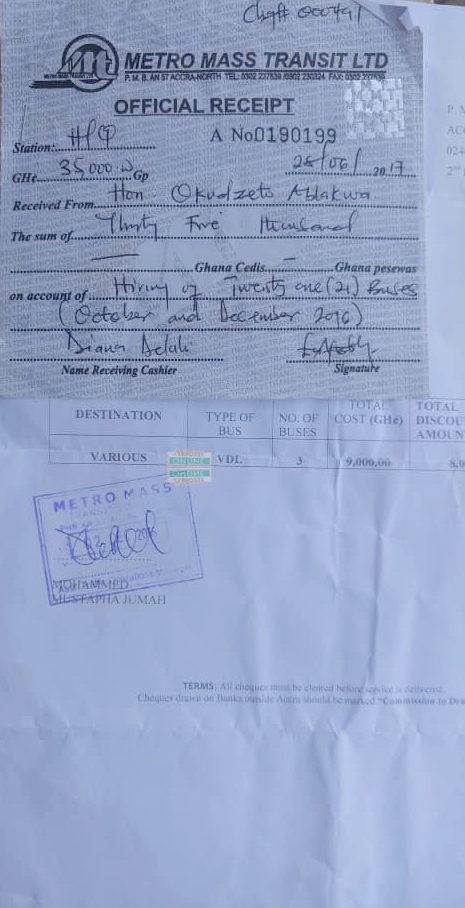 METRO MASS TRANSIT LTD
P. M. B. AN 57 ACCRA-NORTH TEL: 0302 237839 /0302 230324 FAX: 0302
OFFICIAL RECEIPT
A No0190199
Station: HPQ
28/06/2017
GH¢ 35,000.00 Gp
Received From Hon. Okudzeto Ablakwa
The sum of Thirty Five Thousand
Ghana Cedis. — Ghana pesewas
on account of Hiring of Twenty one (21) Buses
(October and December 2016)
Diana Adali
Name Receiving Cashier
Signature
DESTINATION TYPE OF BUS NO. OF BUSES TOTAL COST (GH¢) TOTAL
VARIOUS VDL 3 9,000.00
METRO MASS
MOHAMMED
MUSTAPHA JUMAH
TERMS: All cheques must be cleared before service is delivered.
Cheques drawn on Banks outside Accra should be marked "Commission to